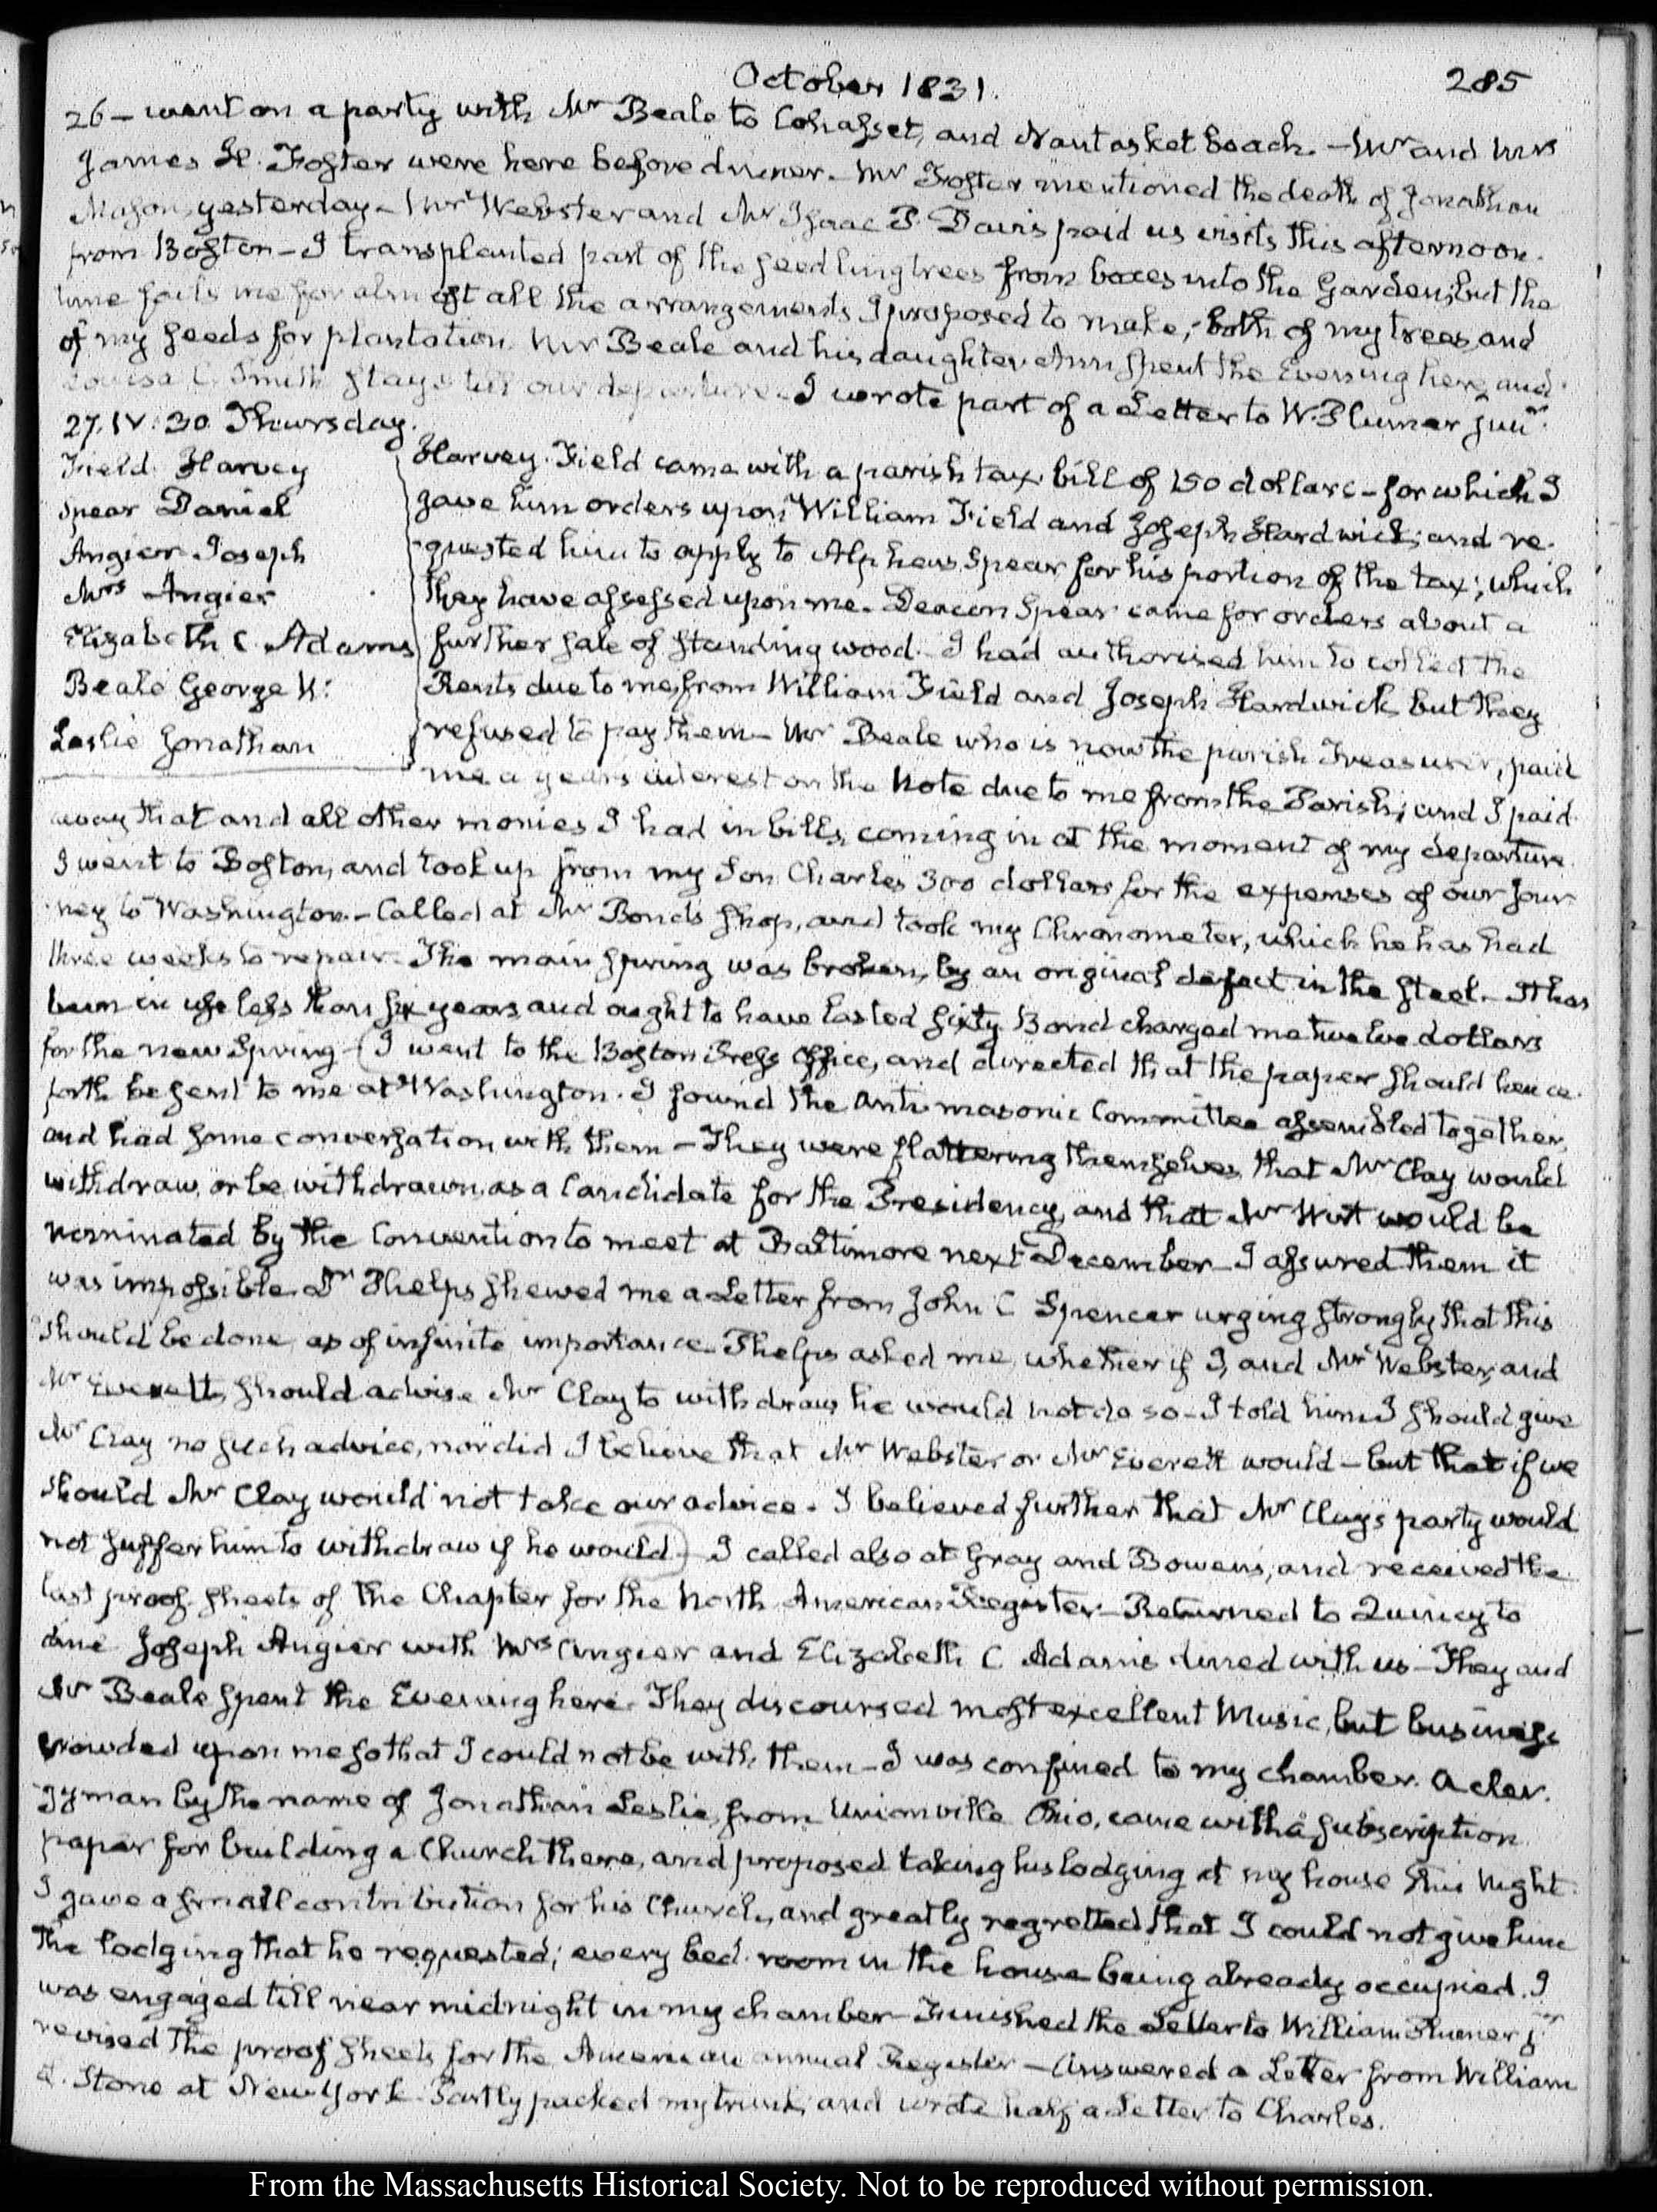 October 1831.
285
26 – went on a party with Mr Beale to Cohasset, and Nantasket beach. – Mr and Mrs
James H. Foster were here before dinner. Mr Foster mentioned the death of Jonathan
Mason, yesterday – Mr Webster and Mr Isaac P. Davis paid us visits this afternoon.
from Boston – I transplanted part of the seedling trees from boxes into the Garden; but the
time fails me for almost all the arrangements I proposed to make, both of my trees, and
of my seeds for plantation. Mr Beale and his daughter Ann spent the Evening here, and
Louisa C. Smith stays till our departure. I wrote part of a Letter to W. Plumer junr.
27. IV:30. Thursday.
Field Harvey
Spear Daniel
Angier Joseph
Mrs Angier
Elizabeth C. Adams
Beale George W:
Leslie Jonathan
Harvey Field came with a parish tax bill of 150 dollars – for which I
gave him orders upon William Field and Joseph Hardwick; and re-
quested him to apply to Alpheus Spear for his portion of the tax; which
they have assessed upon me. Deacon Spear came for orders about a
further sale of standing wood. I had authorised him to collect the
Rents due to me, from William Field and Joseph Hardwick, but they
refused to pay them – Mr Beale who is now the parish Treasurer, paid
me a year's interest on the Note due to me from the Parish; and I paid
away that and all other monies I had in bills, coming in at the moment of my departure.
I went to Boston, and took up from my Son Charles 300 dollars for the expenses of our jour-
ney to Washington. – Called at Mr Bond's shop, and took my Chronometer, which he has had
three weeks to repair. The main spring was broken, by an original defect in the steel. – It has
been in use less than six years, and ought to have lasted sixty. Bond charged me twelve dollars
for the new Spring – (I went to the Boston Press Office, and directed that the paper should hence-
forth be sent to me at Washington. I found the Antimasonic Committee assembled together,
and had some conversation with them – They were flattering themselves that Mr Clay would
withdraw, or be withdrawn, as a Candidate for the Presidency, and that Mr Wirt would be
nominated by the Convention to meet at Baltimore next December – I assured them it
was impossible. Dr Phelps shewed me a Letter from John C Spencer urging strongly that this
should be done, as of infinite importance. Phelps asked me, whether if I, and Mr Webster, and
Mr Everett, should advise Mr Clay to withdraw he would not do so – I told him I should give
Mr Clay no such advice, nor did I believe that Mr Webster or Mr Everett would – but that if we
should Mr Clay would not take our advice. I believed further that Mr Clay's party would
not suffer him to withdraw if he would) – I called also at Gray and Bowen's, and received the
last proof sheets of the Chapter for the North American Register – Returned to Quincy to
dine Joseph Angier with Mrs Angier and Elizabeth C Adams dined with us – They and
Mr Beale spent the Evening here. They discoursed most excellent Music, but business
crowded upon me so that I could not be with them – I was confined to my chamber. A cler-
gyman by the name of Jonathan Leslie, from Unionville Ohio, came with a subscription
paper for building a Church there, and proposed taking his lodging at my house this Night.
I gave a small contribution for his Church, and greatly regretted that I could not give him
the lodging that he requested; every bed-room in the house being already occupied. I
was engaged till near midnight in my chamber – Finished the Letter to William Plumer jr
revised the proof sheets for the American annual Register – Answered a Letter from William
L. Stone at New-York. Partly packed my trunk; and wrote half a Letter to Charles.
From the Massachusetts Historical Society. Not to be reproduced without permission.